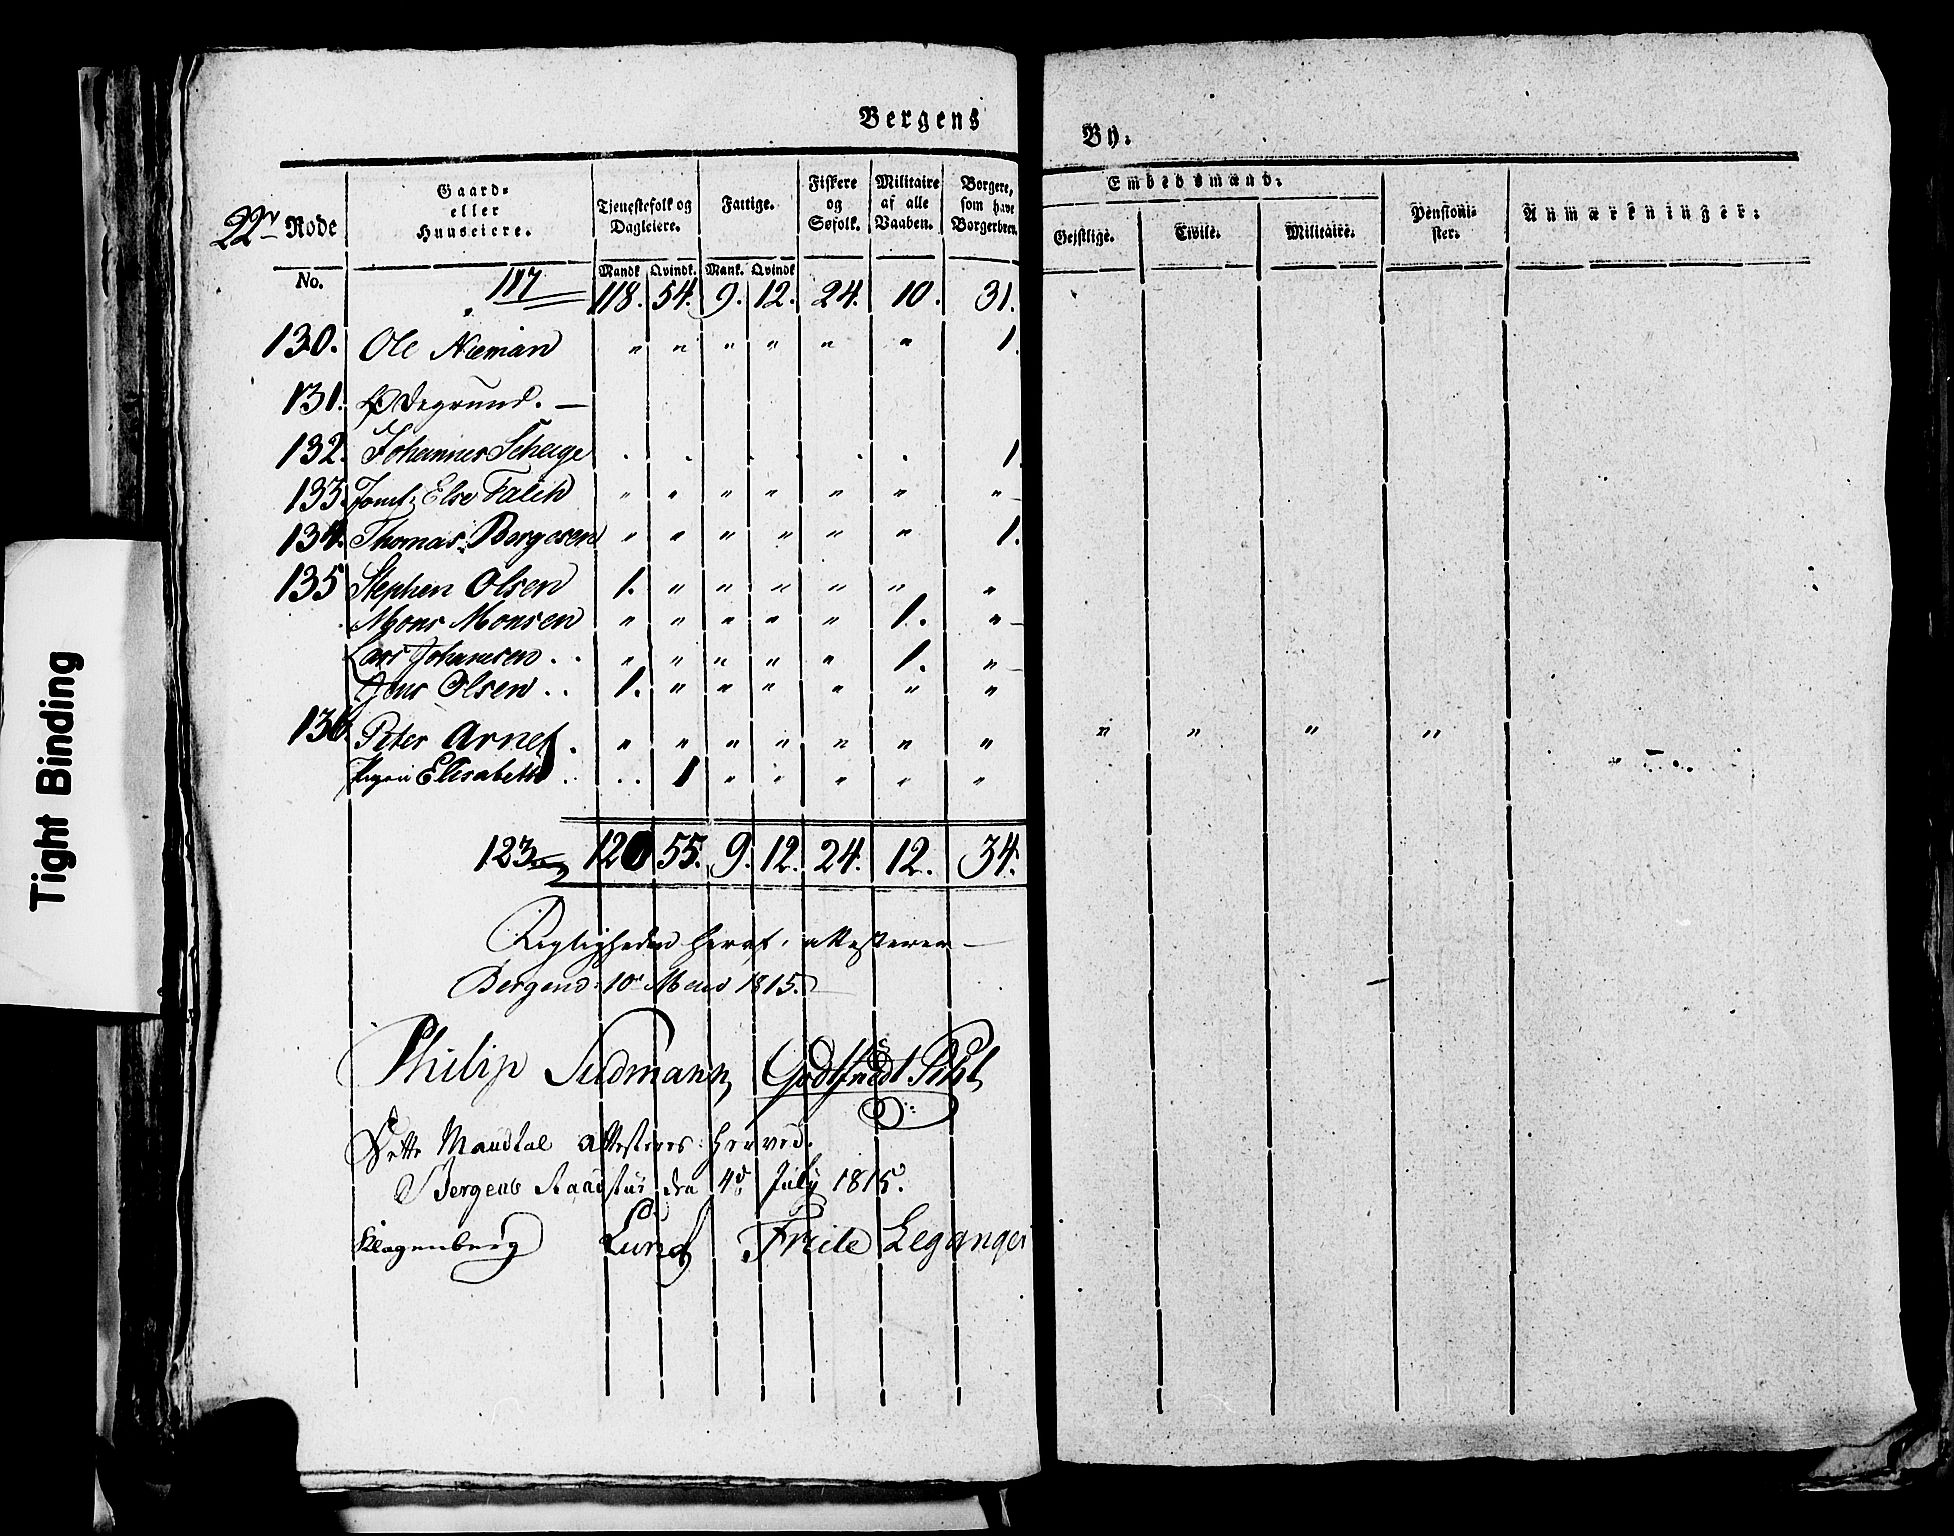 Bergens By.
22r Rode No. | Gaard- eller Huuseiere. | Tjenestefolk og Dagleiere. Mandk. Qvindk. | Fattige. Mank. Qvindk | Fiskere og Søfolk. | Militaire af alle Vaaben. | Borgere, som have Borgerbrev. | Embedsmænd. Gejstlige. Civile. Militaire. | Pensionister. | Anmærkninger.
117 118. 54. 9. 12. 24. 10. 31.
130. Ole Næman " " " " " " 1.
131. Ødegrund. —
132. Johannes Scheige . . . . . 1.
133. Jomf: Else Falck " " " " " " "
134. Thomas Børgesen " " " " " " 1.
135 Stephen Olsen 1. " " " " " "
Mons Monsen " " " " " 1. "
Lars Johannesen . . " " " " " 1. "
Jens Olsen . . 1. " " " " " "
136. Peter Arnes . " " " " " " " " " " "
Pigen Elisabeth . . . . 1 " " " " "
123 120 55. 9. 12. 24. 12. 34.
Rigtigheden heraf attesterer —
Bergen d: 10 1815.
Philip Sudmann Godtfriedt Pihl
Dette Mandtal attesteres herved.
Bergens Raadstue den 4d July 1815.
Klagenberg Lund Friele Leganger
Tight Binding